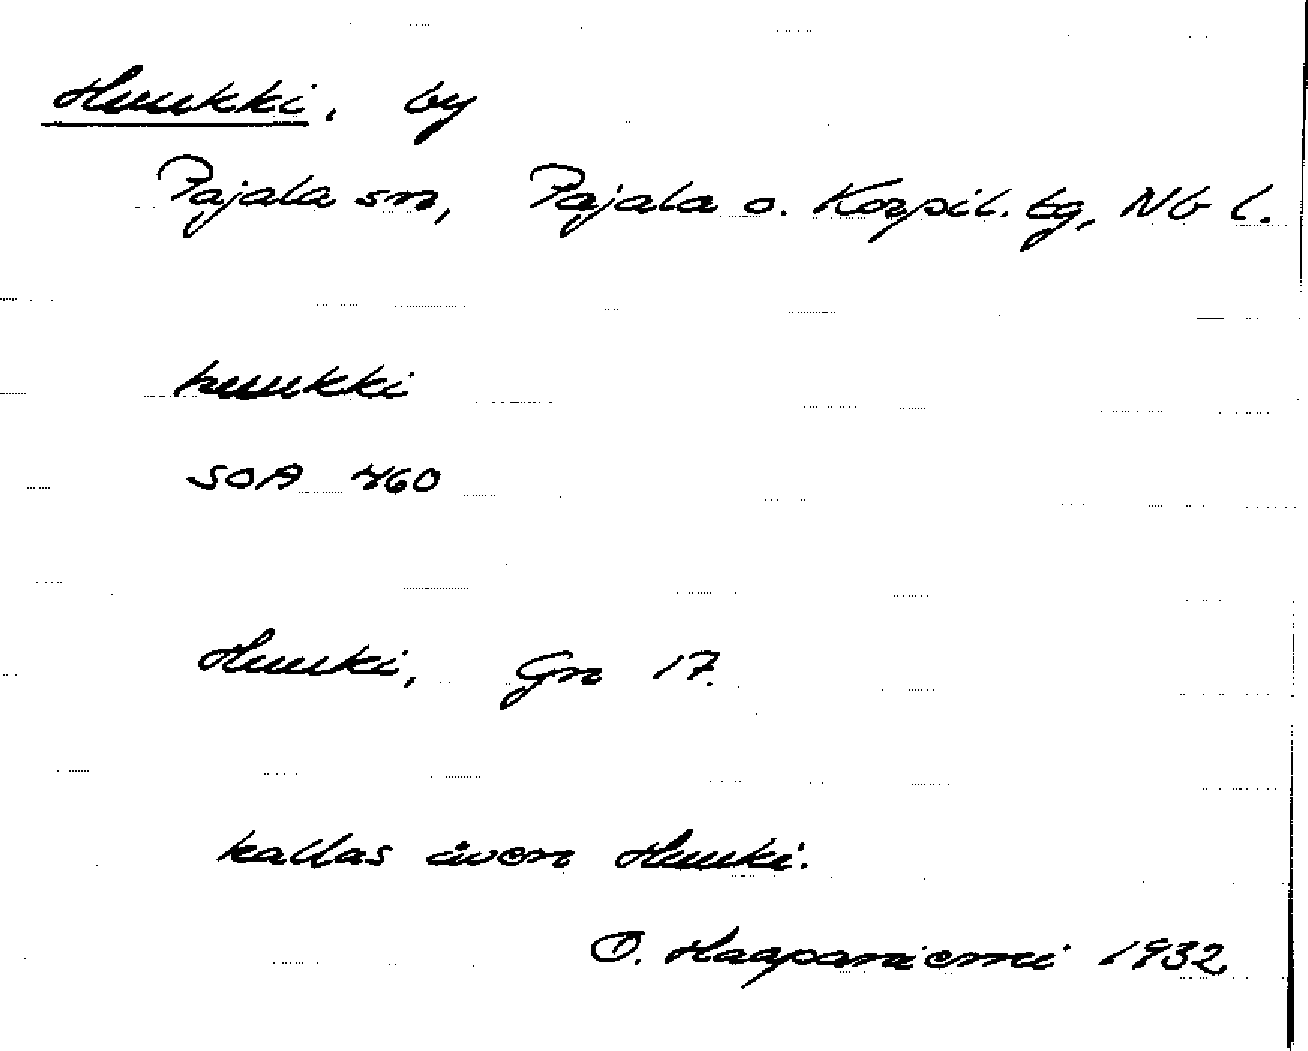 Huukki, by
Pajala sn, Pajala o. Korpil. tg, Nb l.
huukki
SOA 460
Huuki, Gn 17.
kallas även Huuki.
O. Haapaniemi 1932